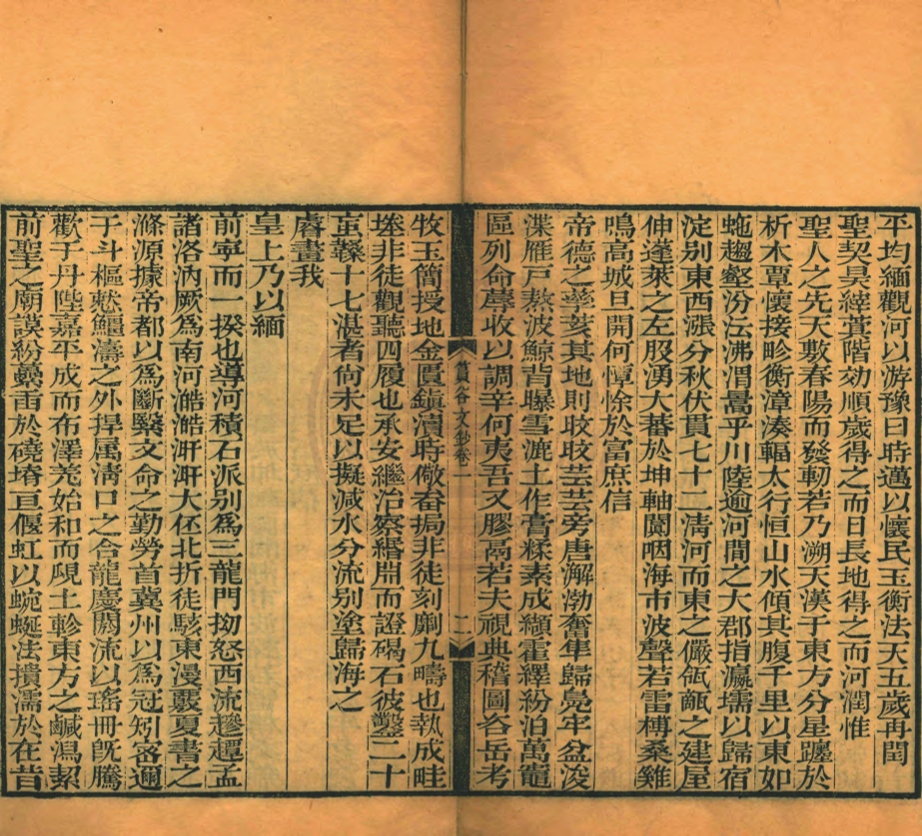 平均緬觀河以游豫曰時邁以懷民玉衡法天五歲再閏
聖契昊縡蓂階効順歲得之而日長地得之而河潤惟
聖人之先天敷春陽而發軔若乃溯天漢于東方分星躔於
析木覃懷接畛衡漳湊輻太行恒山水傾其腹千里以東如
虵趨壑汾沄沸渭暠乎川陸逾河間之大郡指瀛壖以歸宿
淀別東西漲分秋伏貫七十二淸河而東之儼瓴甋之建屋
伸蓬萊之左股湧大蕃於坤軸闐咽海市波聲若雷榑桑雞
鳴高城旦開何憚悆於富庶信
帝德之 其地則 芸芸旁唐澥渤奮隼歸鳧牢盆浚
渫雁戸熬波鯨背曝雪漉土作膏糅素成纈霍繹紛泊萬竈
區列命蓐收以調辛何夷吾又膠鬲若夫視典稽圖咨岳考
文鈔卷一
牧玉簡授地金匱鎭瀆時儆畚挶非徒刻劂九疇也執成畦
埜非徒觀聽四履也承安繼治察縉淵而證碣石彼鑿二十
十七湛者尙未足以擬減水分流別塗歸海之
睿畫我
皇上乃以緬
前寧而一揆也導河積石派别爲三龍門拗怒西流趮 孟
諸洛汭厥爲南河澔澔涆涆大伾北折徒駭東漫覈夏書之
滌源據帝都以爲斷緊文命之勤勞首冀州以爲冠矧宻邇
于斗樞憖鱷濤之外捍属淸口之合龍慶閼流以瑤冊旣騰
歡于丹陛嘉平成而布澤羗始和而覛土軫東方之鹹潟絜
前聖之廟謨紛 臿於磽埆亘偃虹以蜿蜒法撌濡於在昔